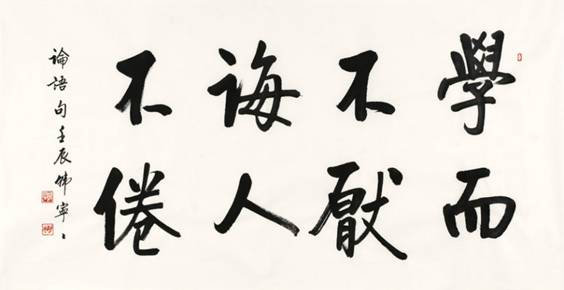 學而
不厭
誨人
不倦
論語句壬辰寧〻